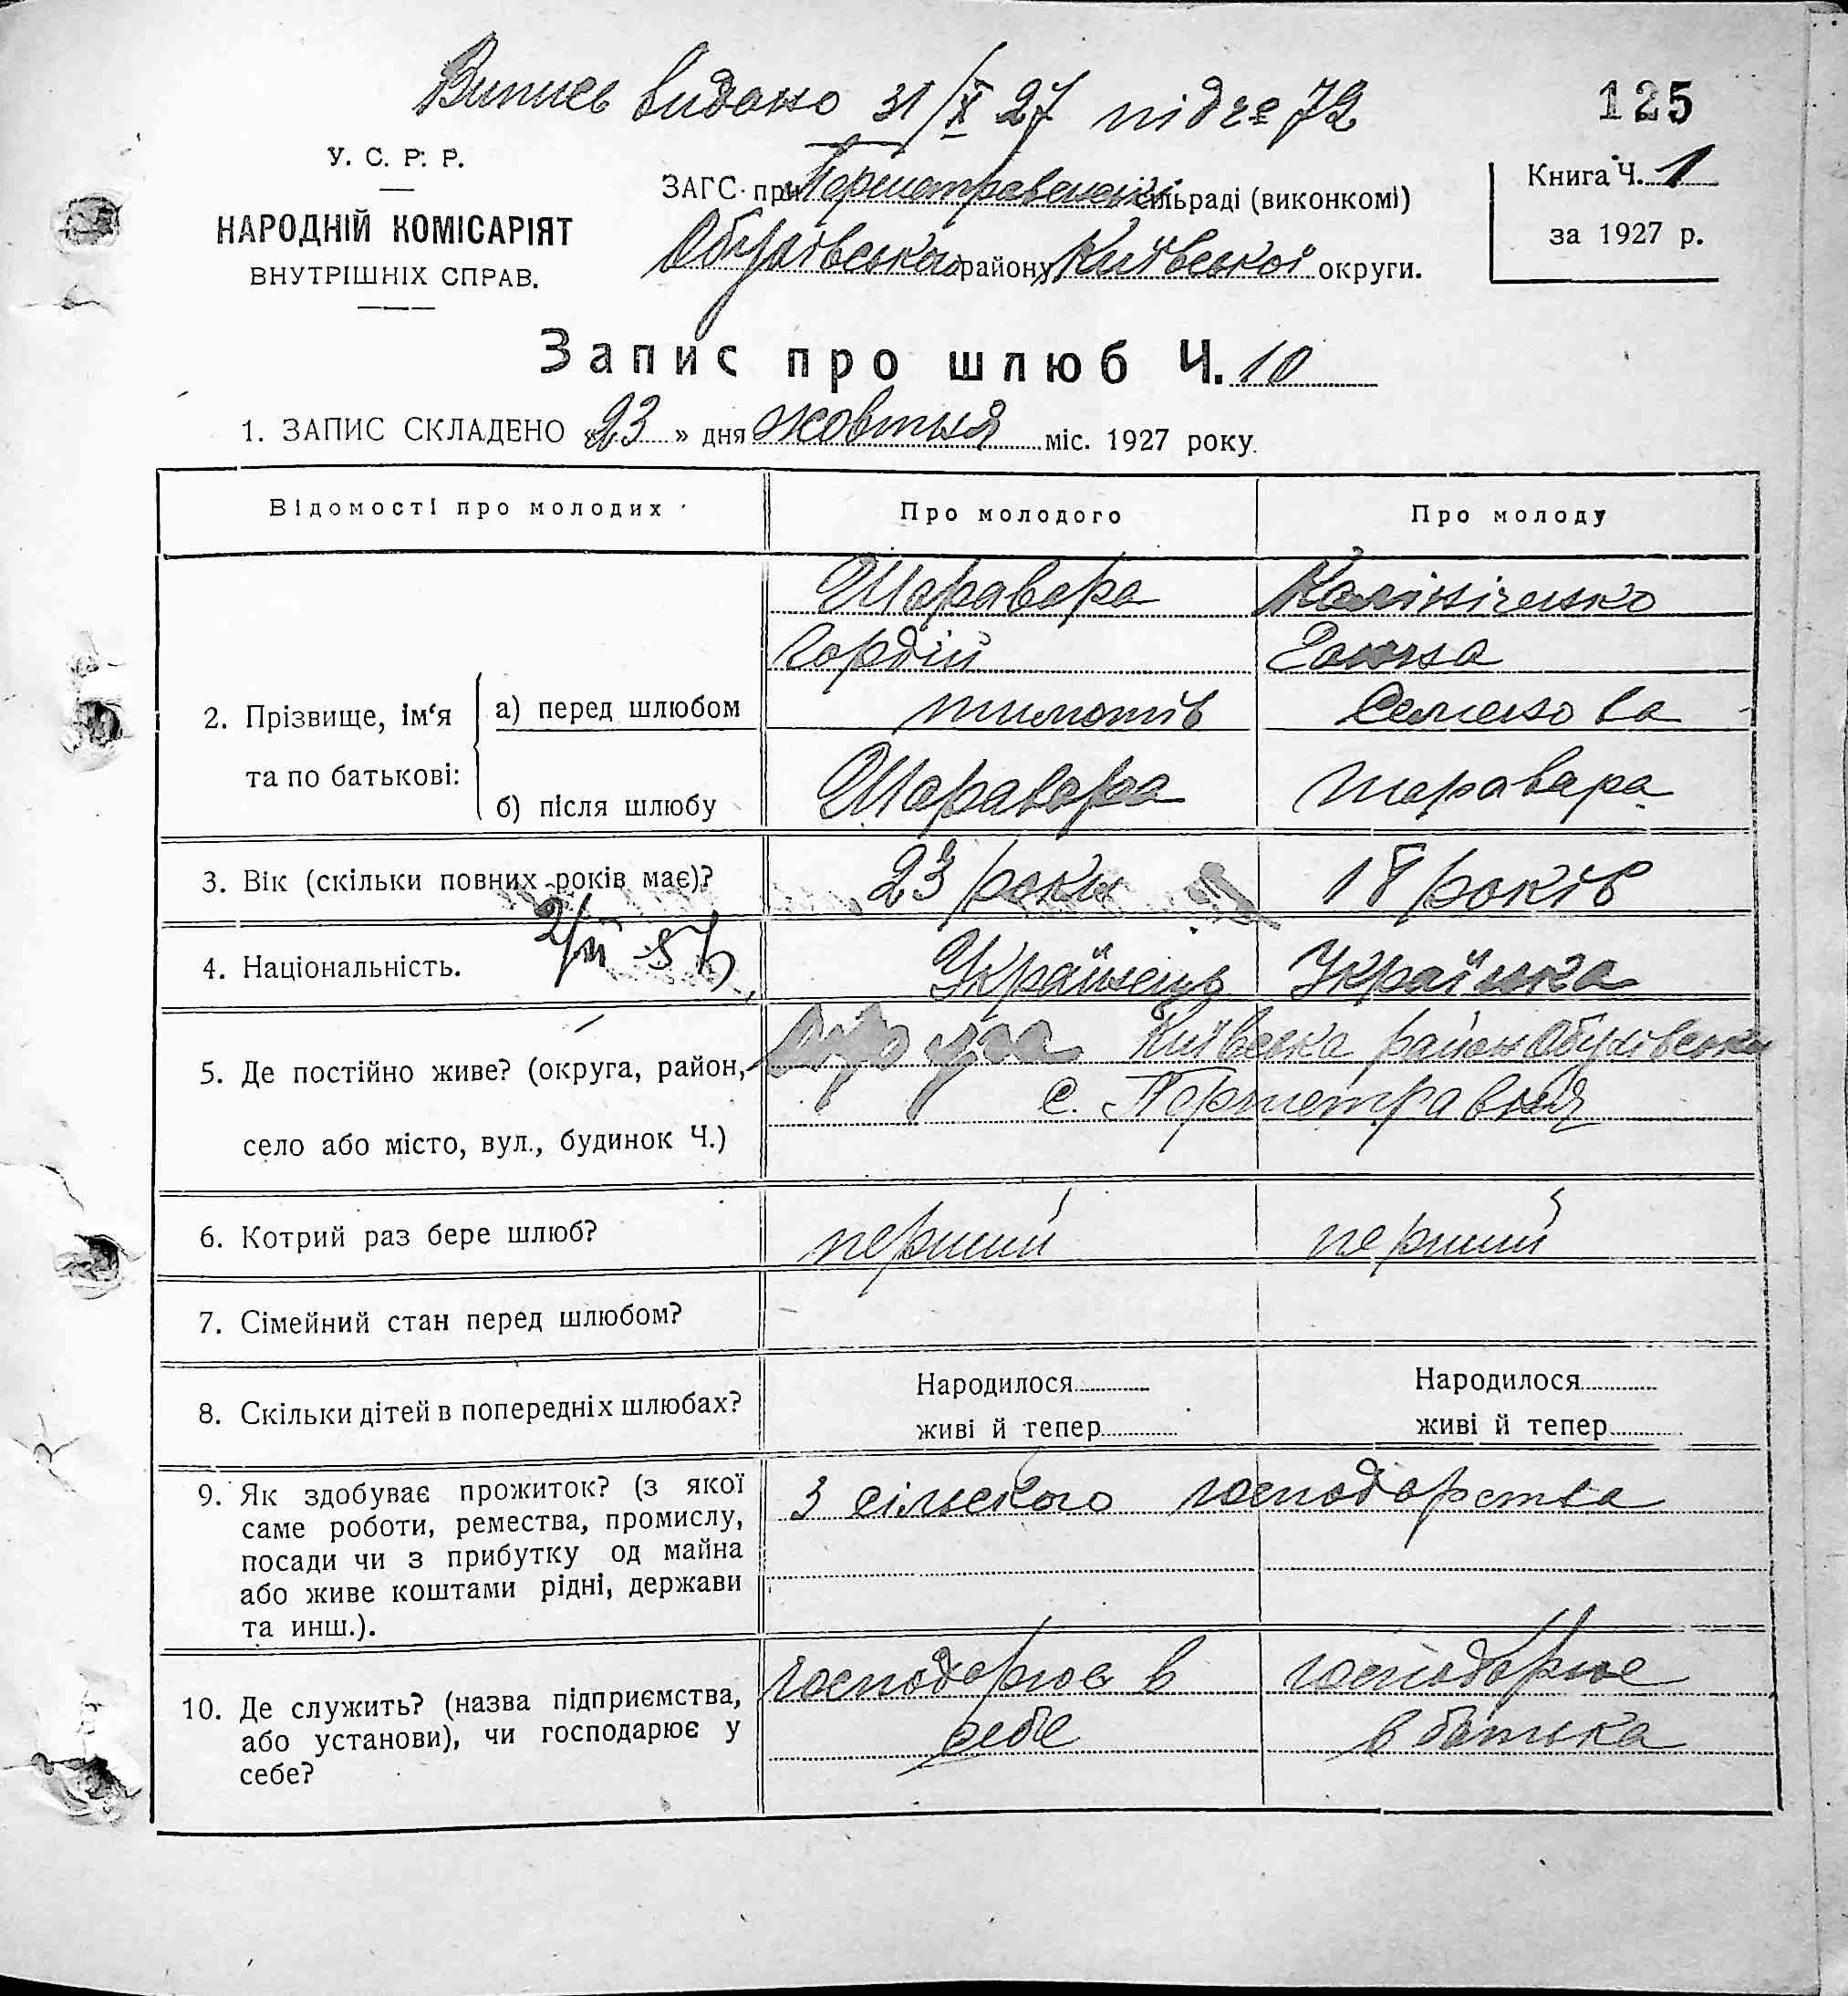 Випись видано 31/X 27 під № 72
125
У. С. Р. Р.
НАРОДНІЙ КОМІСАРІЯТ
ВНУТРІШНІХ СПРАВ.
ЗАГС при сільраді (виконкомі)
Обухівського району Київської округи.
Книга Ч. 1
за 1927 р.
Запис про шлюб Ч. 10
1. ЗАПИС СКЛАДЕНО «23» дня жовтня міс. 1927 року.
Відомості про молодих
Про молодого
Про молоду
2. Прізвище, ім‘я та по батькові:
а) перед шлюбом
Шаравара
Гордій
тимотів
Калініченко
Ганна
Семенова
б) після шлюбу
Шаравара
шаравара
3. Вік (скільки повних років має)?
23 роки
18 років
4. Національність.
Українець
Українка
5. Де постійно живе? (округа, район,
село або місто, вул., будинок Ч.)
Київська район Обухівський
с.
6. Котрий раз бере шлюб?
перший
перший
7. Сімейний стан перед шлюбом?
8. Скільки дітей в попередніх шлюбах?
Народилося
живі й тепер
Народилося
живі й тепер
9. Як здобуває прожиток? (з якої
саме роботи, ремества, промислу,
посади чи з прибутку од майна
або живе коштами рідні, держави
та инш.).
З сільского господарства
10. Де служить? (назва підприємства,
або установи), чи господарює у
себе?
господарює в
себе
господарює
в батька